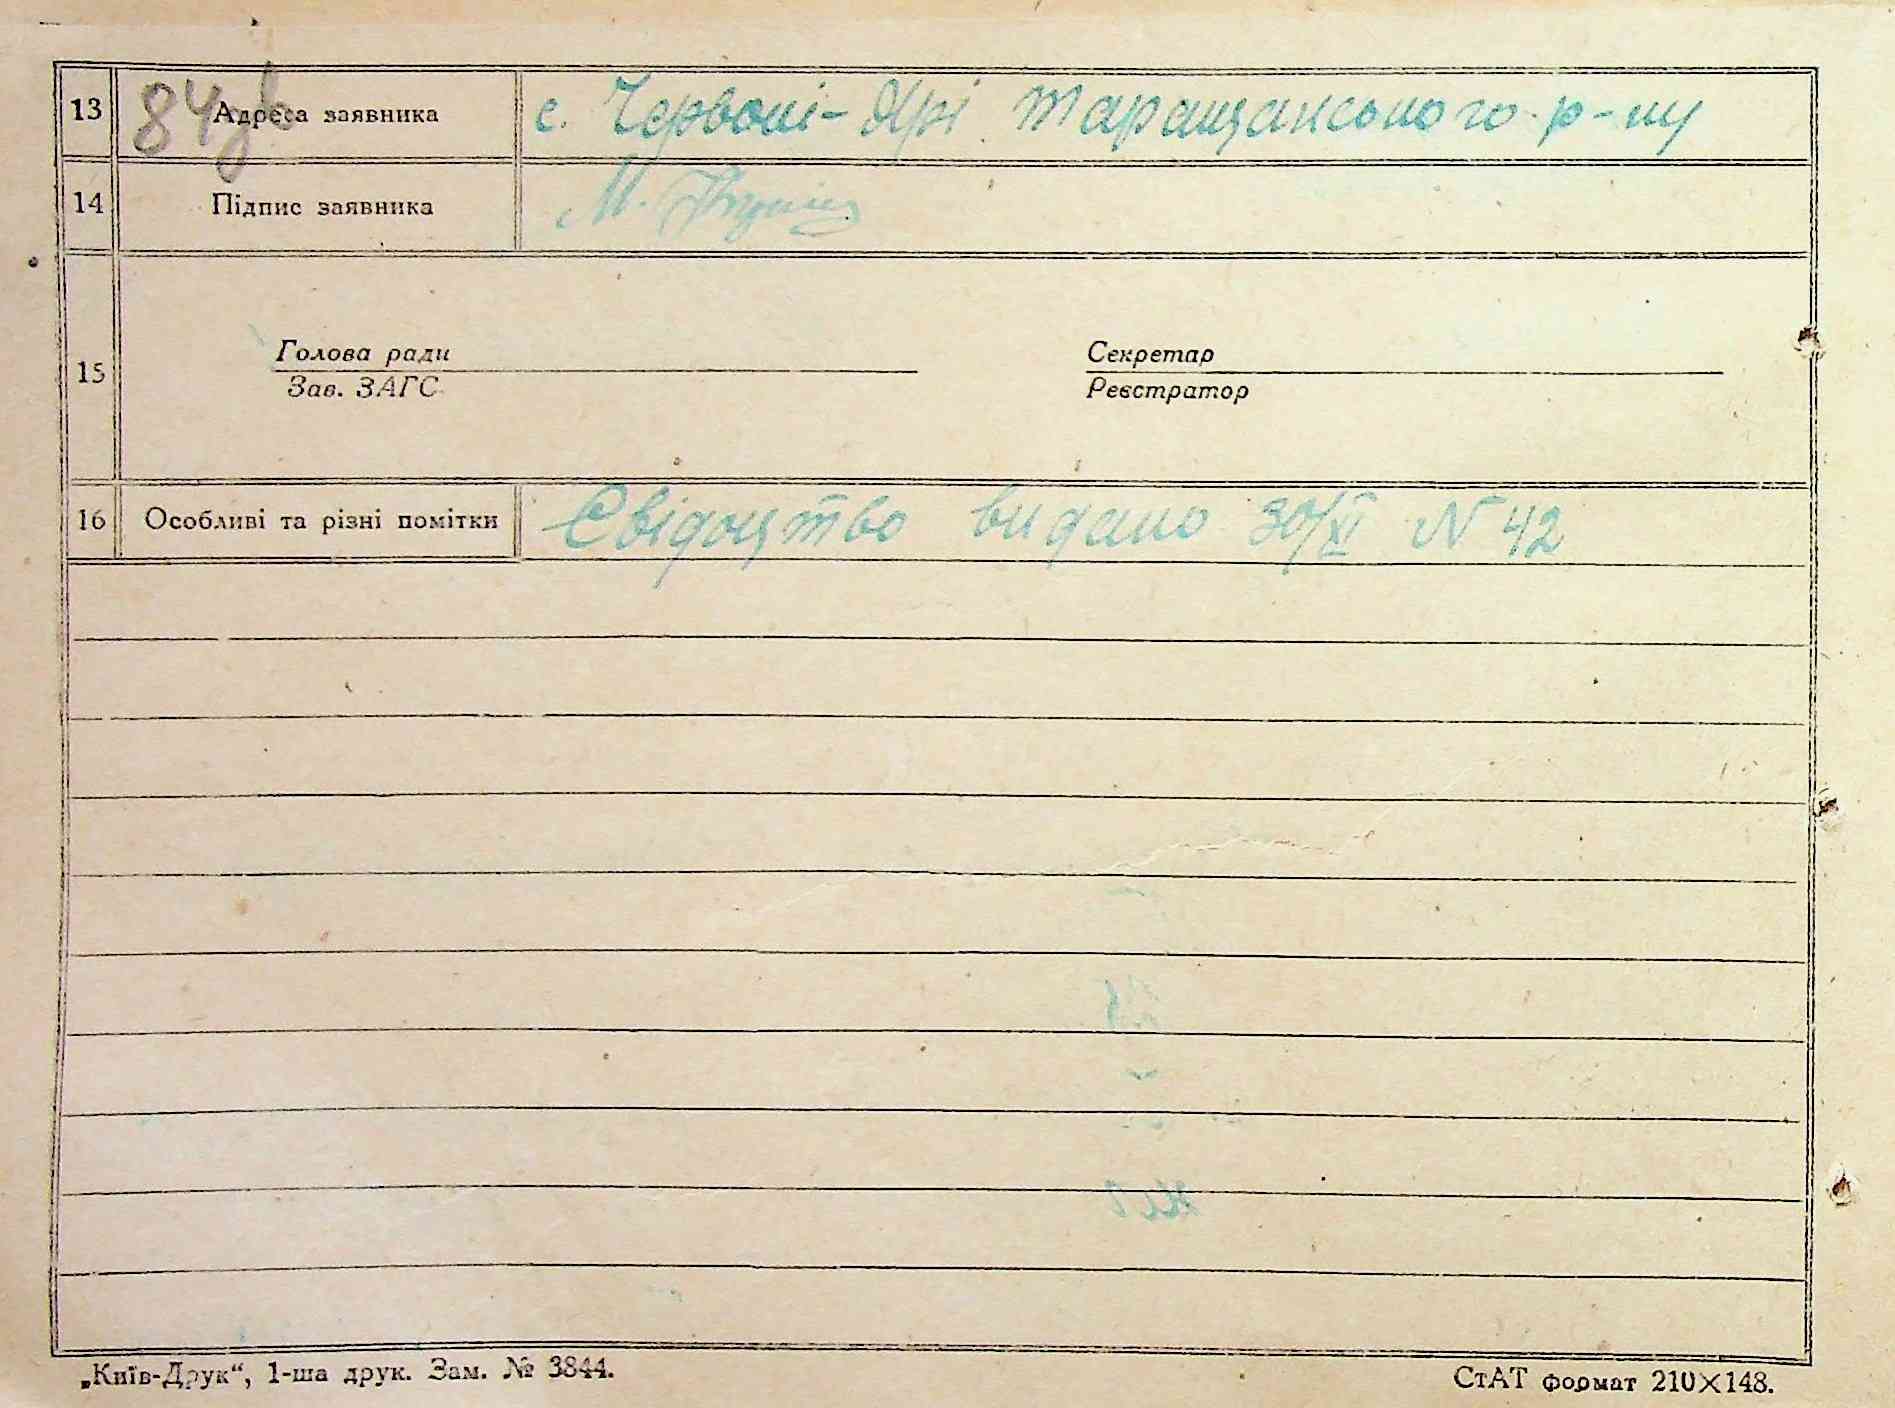 84 зв
13 Адреса заявника с. Червоні-Ярі Таращанського р-ну
14 Підпис заявника М.
15 Голова ради Секретар
Зав. ЗАГС Реєстратор
16 Особливі та різні помітки Свідоцтво видано 30/XI N 42
„Київ-Друк“, 1-ша друк. Зам. № 3844. СтАТ формат 210×148.